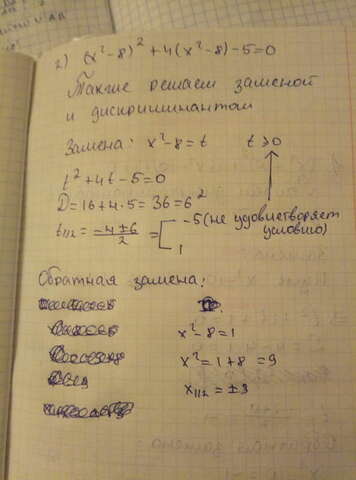 2) (x²-8)²+4(x²-8)-5=0
Также решаем заменой
и дискриминантом
Замена: x²-8=t t≥0
t²+4t-5=0
D=16+4·5=36=6²
t₁,₂=(-4±6)/2= [-5 (не удовлетворяет условию)
1
Обратная замена:
x²-8=1
x²=1+8=9
x₁,₂=±3